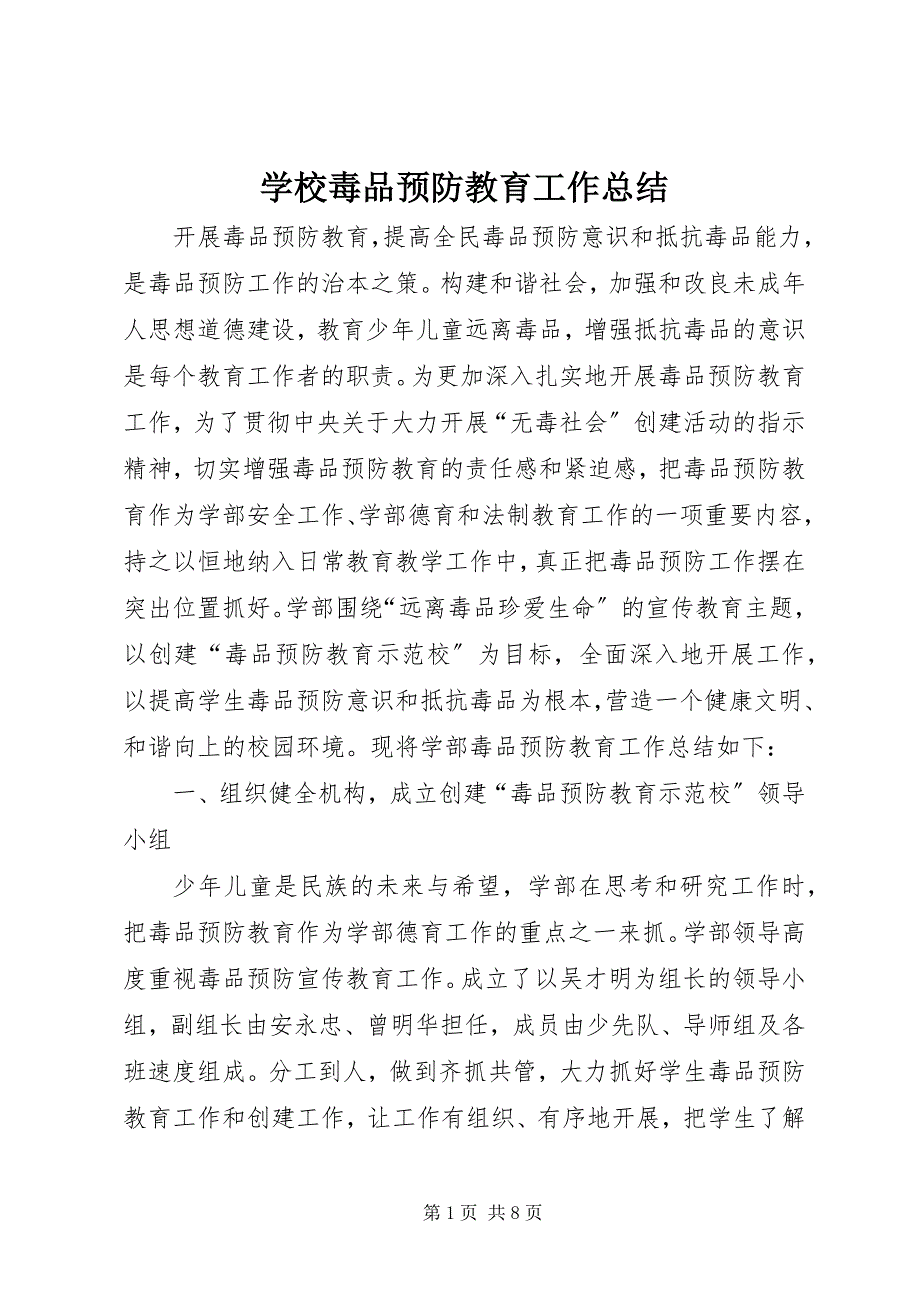 学校毒品预防教育工作总结
开展毒品预防教育，提高全民毒品预防意识和抵抗毒品能力，
是毒品预防工作的治本之策。构建和谐社会，加强和改良未成年
人思想道德建设，教育少年儿童远离毒品，增强抵抗毒品的意识
是每个教育工作者的职责。为更加深入扎实地开展毒品预防教育
工作，为了贯彻中央关于大力开展“无毒社会〞创建活动的指示
精神，切实增强毒品预防教育的责任感和紧迫感，把毒品预防教
育作为学部安全工作、学部德育和法制教育工作的一项重要内容，
持之以恒地纳入日常教育教学工作中，真正把毒品预防工作摆在
突出位置抓好。学部围绕“远离毒品珍爱生命〞的宣传教育主题，
以创建“毒品预防教育示范校〞为目标，全面深入地开展工作，
以提高学生毒品预防意识和抵抗毒品为根本，营造一个健康文明、
和谐向上的校园环境。现将学部毒品预防教育工作总结如下：
一、组织健全机构，成立创建“毒品预防教育示范校〞领导
小组
少年儿童是民族的未来与希望，学部在思考和研究工作时，
把毒品预防教育作为学部德育工作的重点之一来抓。学部领导高
度重视毒品预防宣传教育工作。成立了以吴才明为组长的领导小
组，副组长由安永忠、曾明华担任，成员由少先队、导师组及各
班速度组成。分工到人，做到齐抓共管，大力抓好学生毒品预防
教育工作和创建工作，让工作有组织、有序地开展，把学生了解
第 1 页 共 8 页